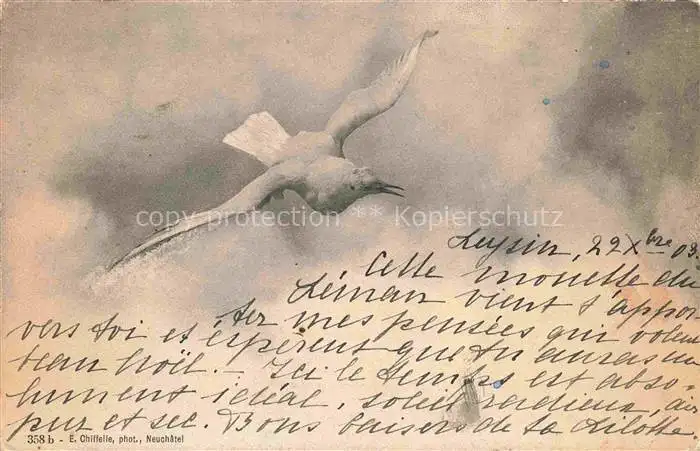 copy protection ** Kopierschutz
Leysin, 22 Xbre 03.
Cette mouette du
Léman vient t'appor
ter mes pensées qui volent
vers toi et espèrent que tu auras un
beau Noël. - Ici le temps est abso-
lument idéal, soleil radieux, air
pur et sec. Bons baisers de ta
358 b - E. Chiffelle, phot., Neuchâtel